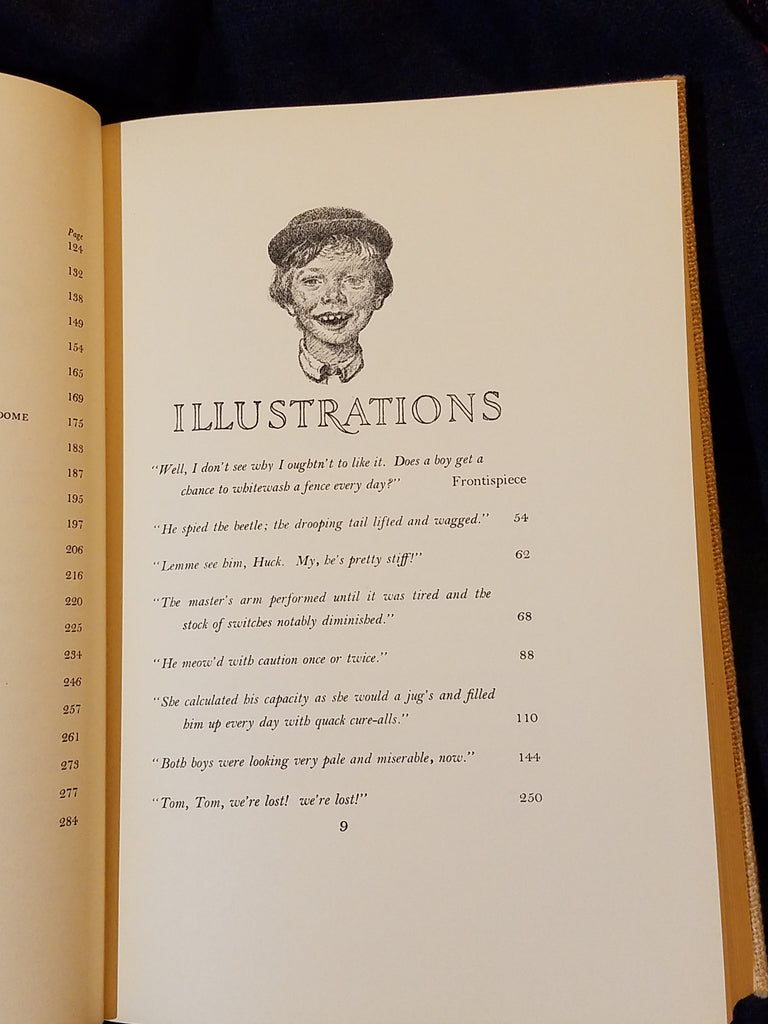 Page
124
132
138
149
154
165
169
OOME
175
183
187
195
197
206
216
220
225
234
246
257
261
273
277
284
ILLUSTRATIONS
"Well, I don't see why I oughtn't to like it. Does a boy get a
chance to whitewash a fence every day?" Frontispiece
"He spied the beetle; the drooping tail lifted and wagged." 54
"Lemme see him, Huck. My, he's pretty stiff!" 62
"The master's arm performed until it was tired and the
stock of switches notably diminished." 68
"He meow'd with caution once or twice." 88
"She calculated his capacity as she would a jug's and filled
him up every day with quack cure-alls." 110
"Both boys were looking very pale and miserable, now." 144
"Tom, Tom, we're lost! we're lost!" 250
9